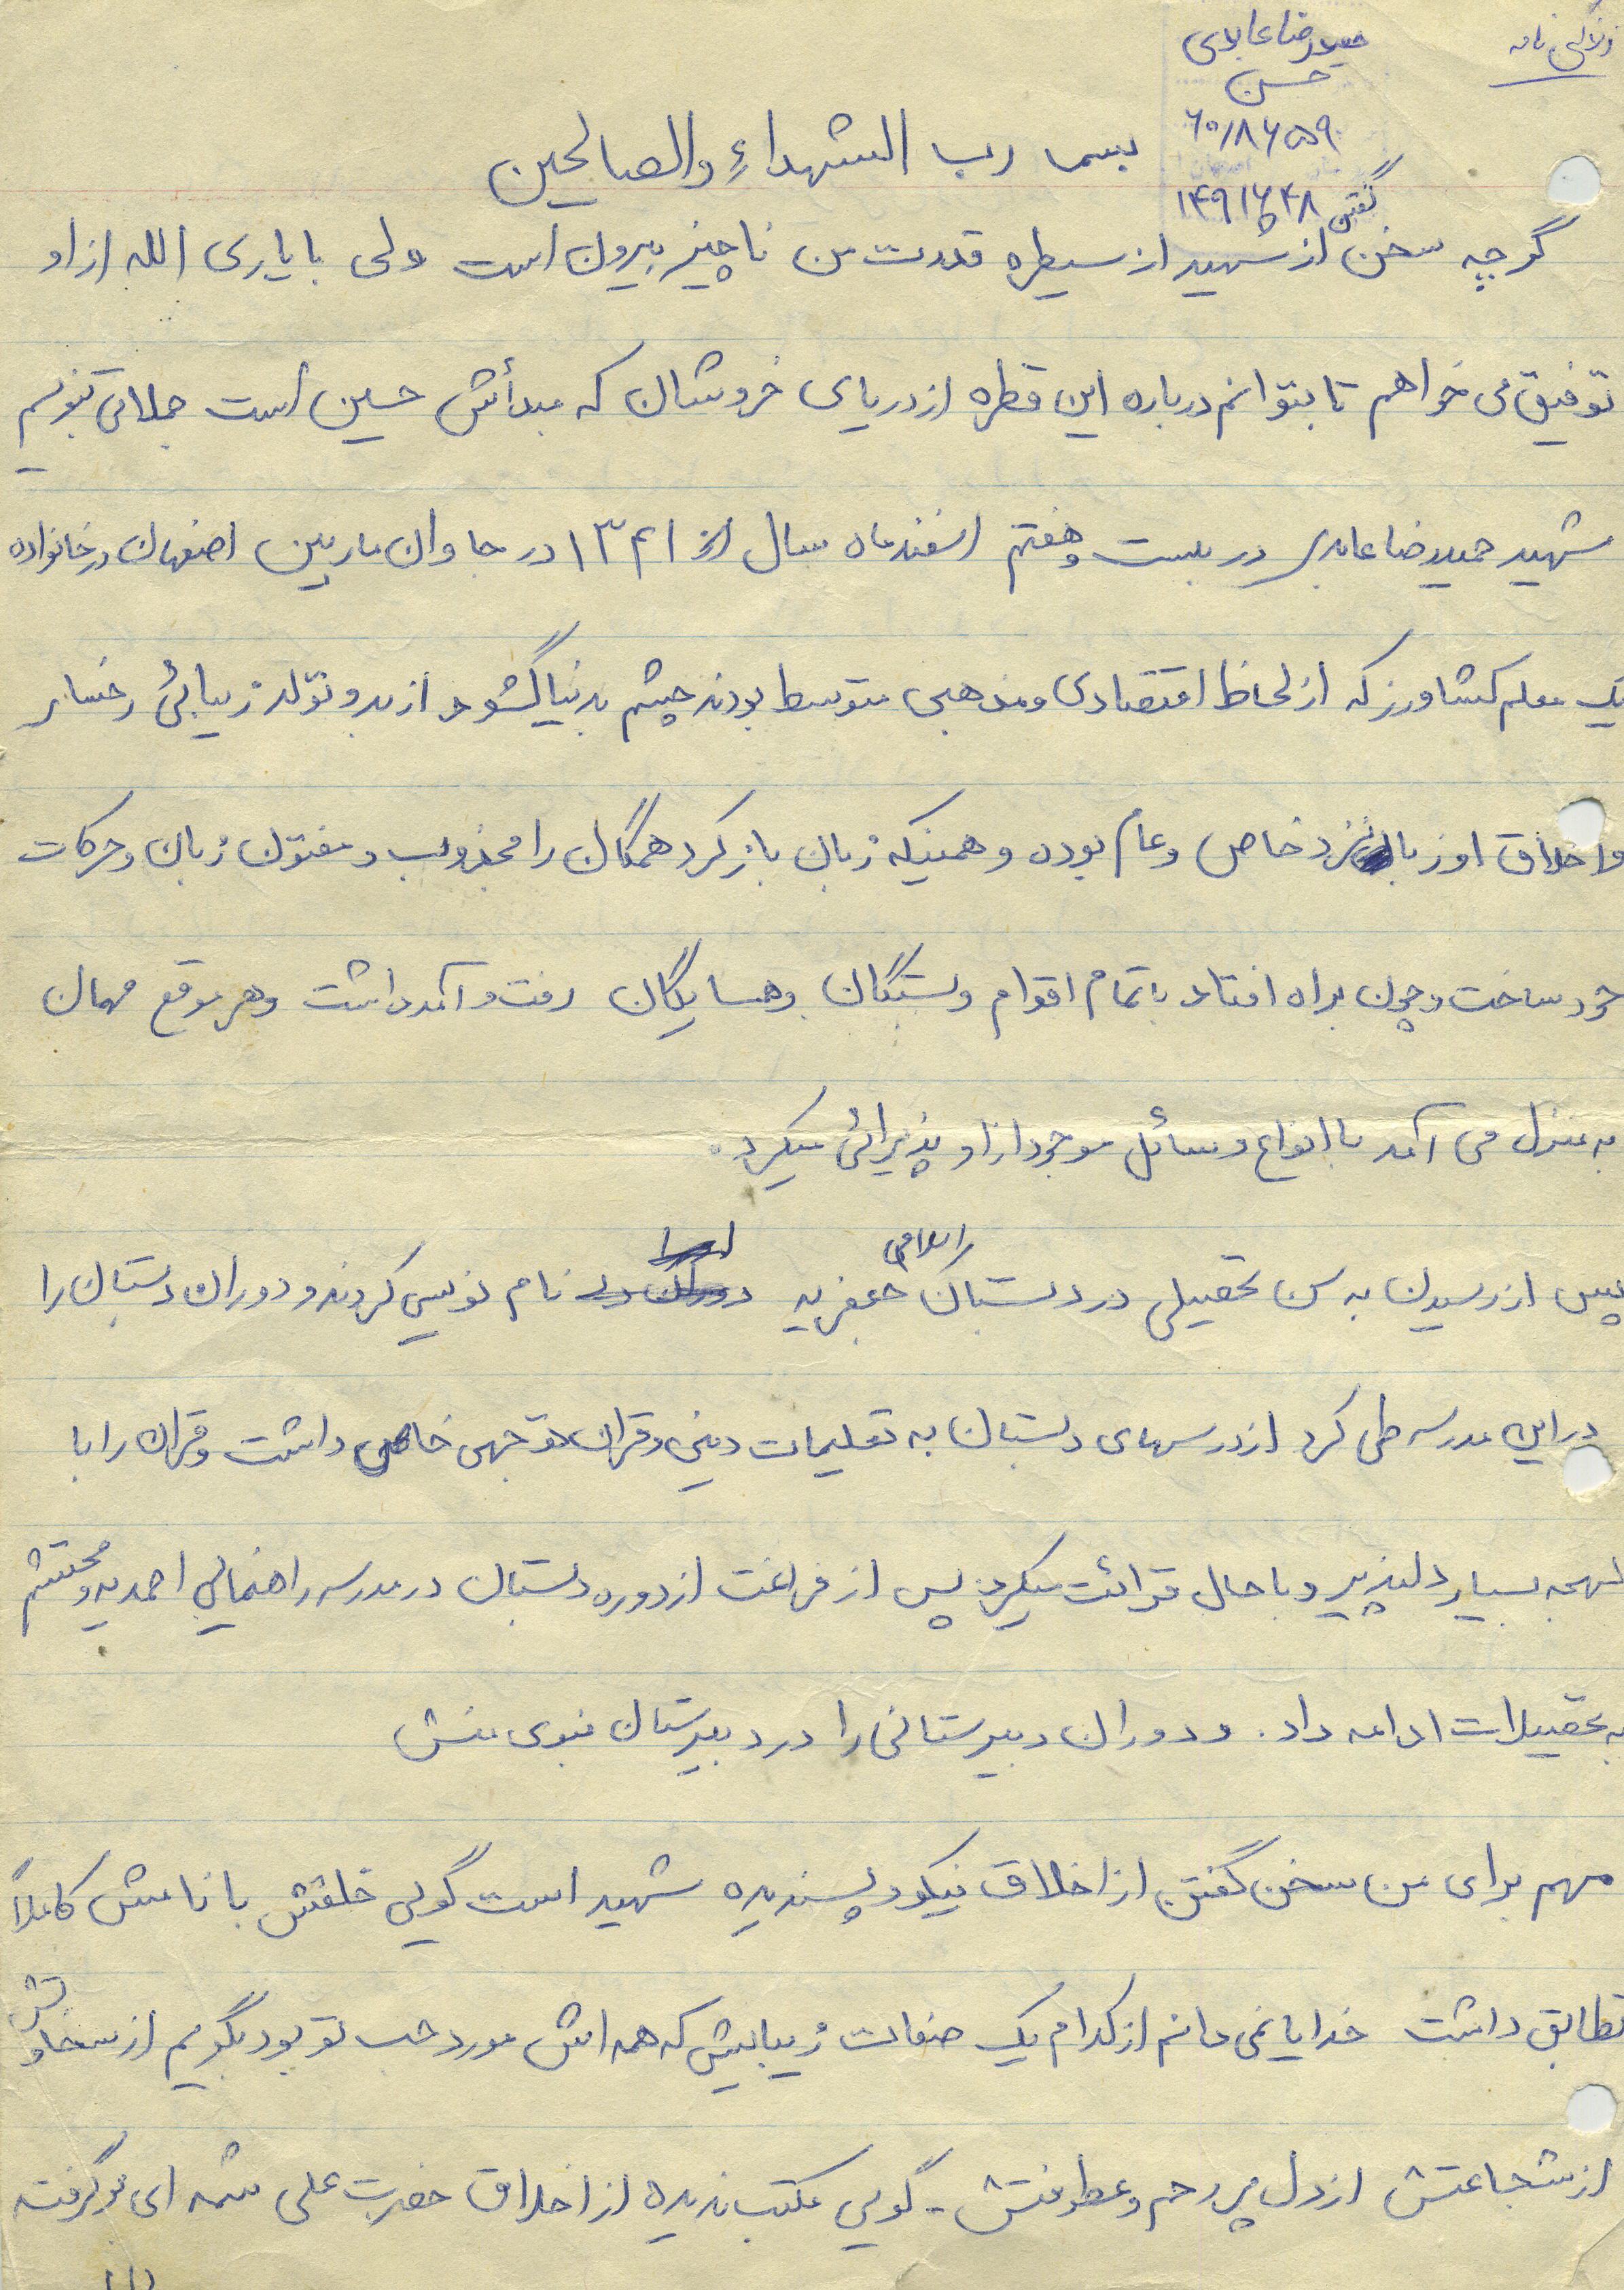 زندگی نامه
حمیدرضا عابدی
حسن
۶۰/۸۶۵۹
۱۴۹۱۶۴۸
بسم رب الشهداءِ والصالحین
گرچه سخن گفتن از شهید از سیطره قدرت من ناچیز بیرون است ولی با یاری الله از او
توفیق می خواهم تا بتوانم درباره این قطره از دریای خروشان که مبدأش حسین است جملاتی بنویسم
شهید حمیدرضا عابدی در بیست وهفتم اسفندماه سال ۱۳۴۱ در جاوان ماربین اصفهان درخانواده
یک معلم کشاورز که از لحاظ اقتصادی ومذهبی متوسط بودند چشم بدنیا گشود از بدو تولد زیبائی رخسار
واخلاق او زبانزد خاص وعام بوده و همینکه زبان باز کرد همگان را مجذوب و مفتون زبان وحرکات
خود ساخت وچون براه افتاد با تمام اقوام وبستگان وهمسایگان رفت و آمد داشت وهر موقع مهمان
به منزل می آمد با انواع وسائل موجود از او پذیرائی میکرد.
پس از رسیدن به سن تحصیلی در دبستان جعفریه اسلامی نام نویسی کردند و دوران دبستان را
در این مدرسه طی کرد از درسهای دبستان به تعلیمات دینی وقرآن توجهی خاص داشت وقرآن را با
لهجه بسیار دلپذیر وبا حال قرائت میکرد پس از فراغت از دوره دبستان در مدرسه راهنمایی احمدیه ومحتشم
به تحصیلات ادامه داد. و دوران دبیرستانی را در دبیرستان نبوی منش
مهم برای من سخن گفتن از اخلاق نیکو وپسندیده شهید است گویی خلقتش با نامش کاملاً
تطابق داشت خدایا نمی دانم از کدام یک صفات زیبایش که همه اش مورد حب تو بود بگویم از سخاوتش
از شجاعتش از دل پر رحم وعطوفتش - گویی مکتب ندیده از اخلاق حضرت علی شمه ای فرگرفته